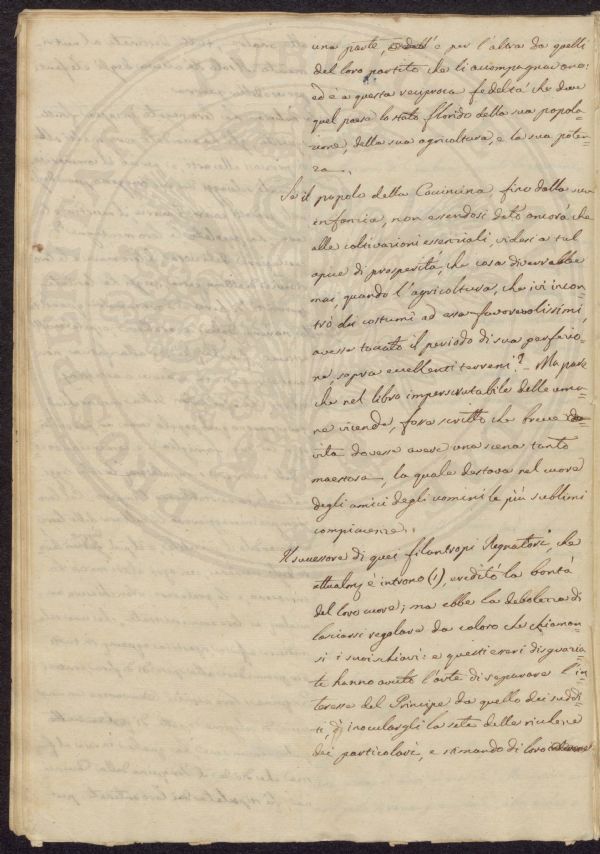 una parte, e per l'altra da quelli
del loro partito che li accompagnavano:
ed è a questa reciproca fedeltà che deve
quel paese lo stato florido della sua popola=
zione, della sua agricoltura, e la sua poten=
za.
Se il popolo della Cocincina fino dalla sua
infanzia, non essendosi dato ancora che
alle coltivazioni essenziali, videsi a tal
apice di prosperità, che cosa diverrebbe
mai, quando l'agricoltura, che ivi incon=
trò dei costumi ad essa favorevolissimi,
avesse toccato il periodo di sua perfezio=
ne, sopra eccellenti terreni? - Ma pare
che nel libro imperscrutabile delle uma=
ne vicende, fosse scritto che breve
vita dovesse avere una scena tanto
maestosa, la quale destava nel cuore
degli amici degli uomini le più sublimi
compiacenze.
Il successore di quei filantropi Regnatori, che
è in trono (1), ereditò la bontà
del loro cuore; ma ebbe la debolezza di
lasciarsi regolare da coloro che chiaman=
si i suoi schiavi: e questi esseri disgrazia=
ti hanno avuto l'arte di separare l'in=
teresse del Principe da quello dei suddi=
ti, inoculargli la sete delle ricchezze
dei particolari, e stimando di loro